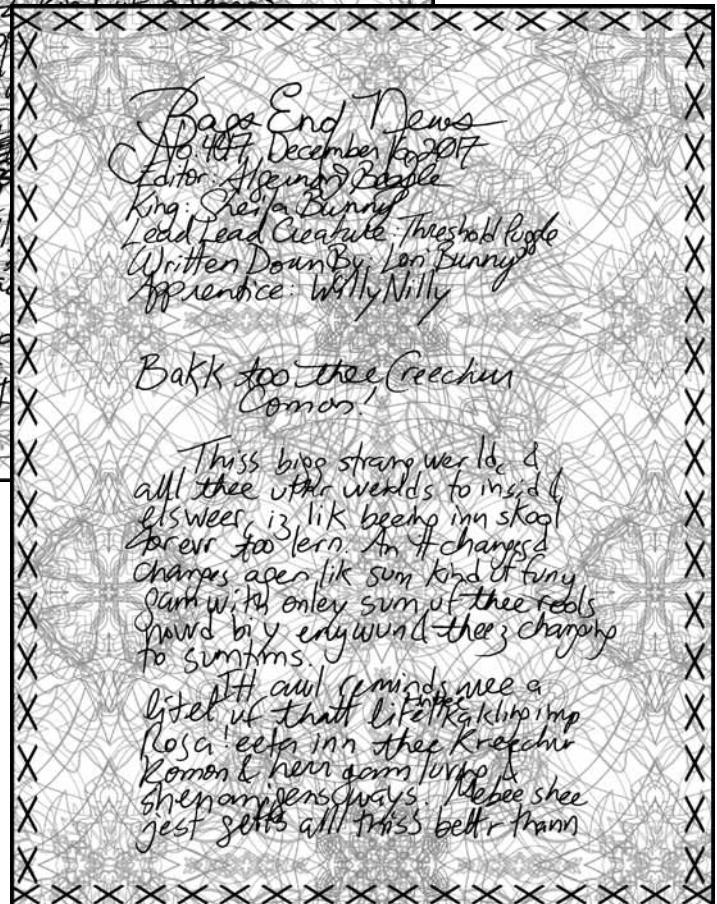 Bags End News
No. 407 December 16, 2017
Editor: Algernon Beagle
King: Sheila Bunny
Lead Lead Creature: Threshold Puggle
Written Down By: Lori Bunny
Apprentice: Willy Nilly
Bakk too thee Creechur
Comon!
Thiss bigg strang werld, &
alll thee uthr werlds to insid &
elsweer, iz lik beeing inn skool
forevr too lern. An it changes &
changes agen lik sum kind uf funy
gam with onley sum uf thee rools
nowd bi y enywun & theez changing
to sumtims.
Itt awl reminds mee a
litel uf thatt litel kakling imp
Rosa!eeta inn thee Kreechur
Komon & herr gam luving &
shenanigens ways. Mebee shee
jest getts alll thiss bettr thann